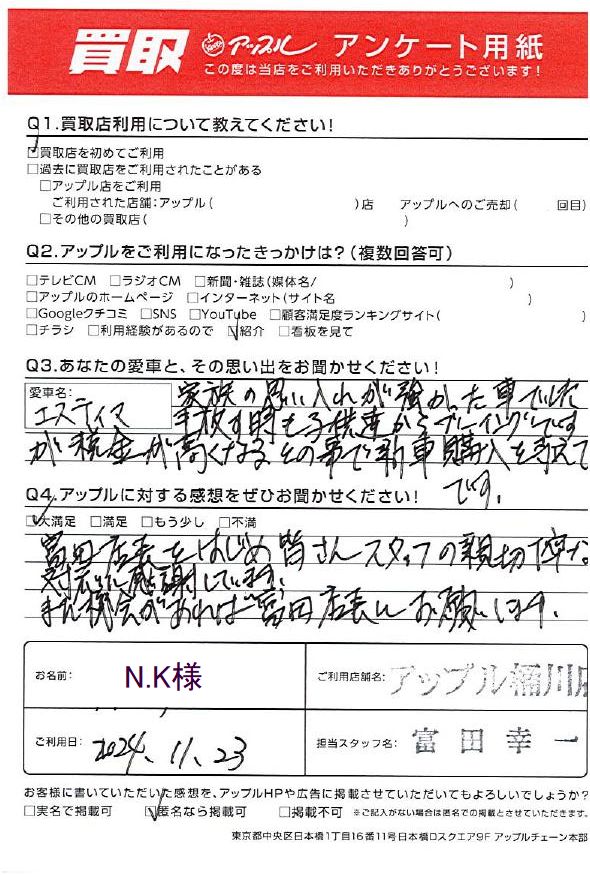 買取 アップル アンケート用紙
この度は当店をご利用いただきありがとうございます!
Q1.買取店利用について教えてください!
☑買取店を初めてご利用
□過去に買取店をご利用されたことがある
□アップル店をご利用
ご利用された店舗:アップル( )店 アップルへのご売却( 回目)
□その他の買取店( )
Q2.アップルをご利用になったきっかけは?(複数回答可)
□テレビCM □ラジオCM □新聞・雑誌(媒体名/ )
□アップルのホームページ □インターネット(サイト名 )
□Googleクチコミ □SNS □YouTube □顧客満足度ランキングサイト( )
□チラシ □利用経験があるので ☑紹介 □看板を見て
Q3.あなたの愛車と、その思い出をお聞かせください!
愛車名: 家族の思い入れが強かった車でした
エスティマ 手放す時も子供達からブーイングです
が税金が高くなるその事で新車購入を
です。
Q4.アップルに対する感想をぜひお聞かせください!
☑大満足 □満足 □もう少し □不満
富田店長をはじめ皆さんスタッフの親切
対応に感謝しています。
また機会があれば富田店長にお願いします。
お名前: N.K様 ご利用店舗名: アップル桶川店
ご利用日: 2024.11.23 担当スタッフ名: 富田幸一
お客様に書いていただいた感想を、アップルHPや広告に掲載させていただいてもよろしいでしょうか?
□実名で掲載可 ☑匿名なら掲載可 □掲載不可 ※ご記入がない場合は匿名での掲載とさせていただきます。
東京都中央区日本橋1丁目16番11号日本橋ロスクエア9F アップルチェーン本部